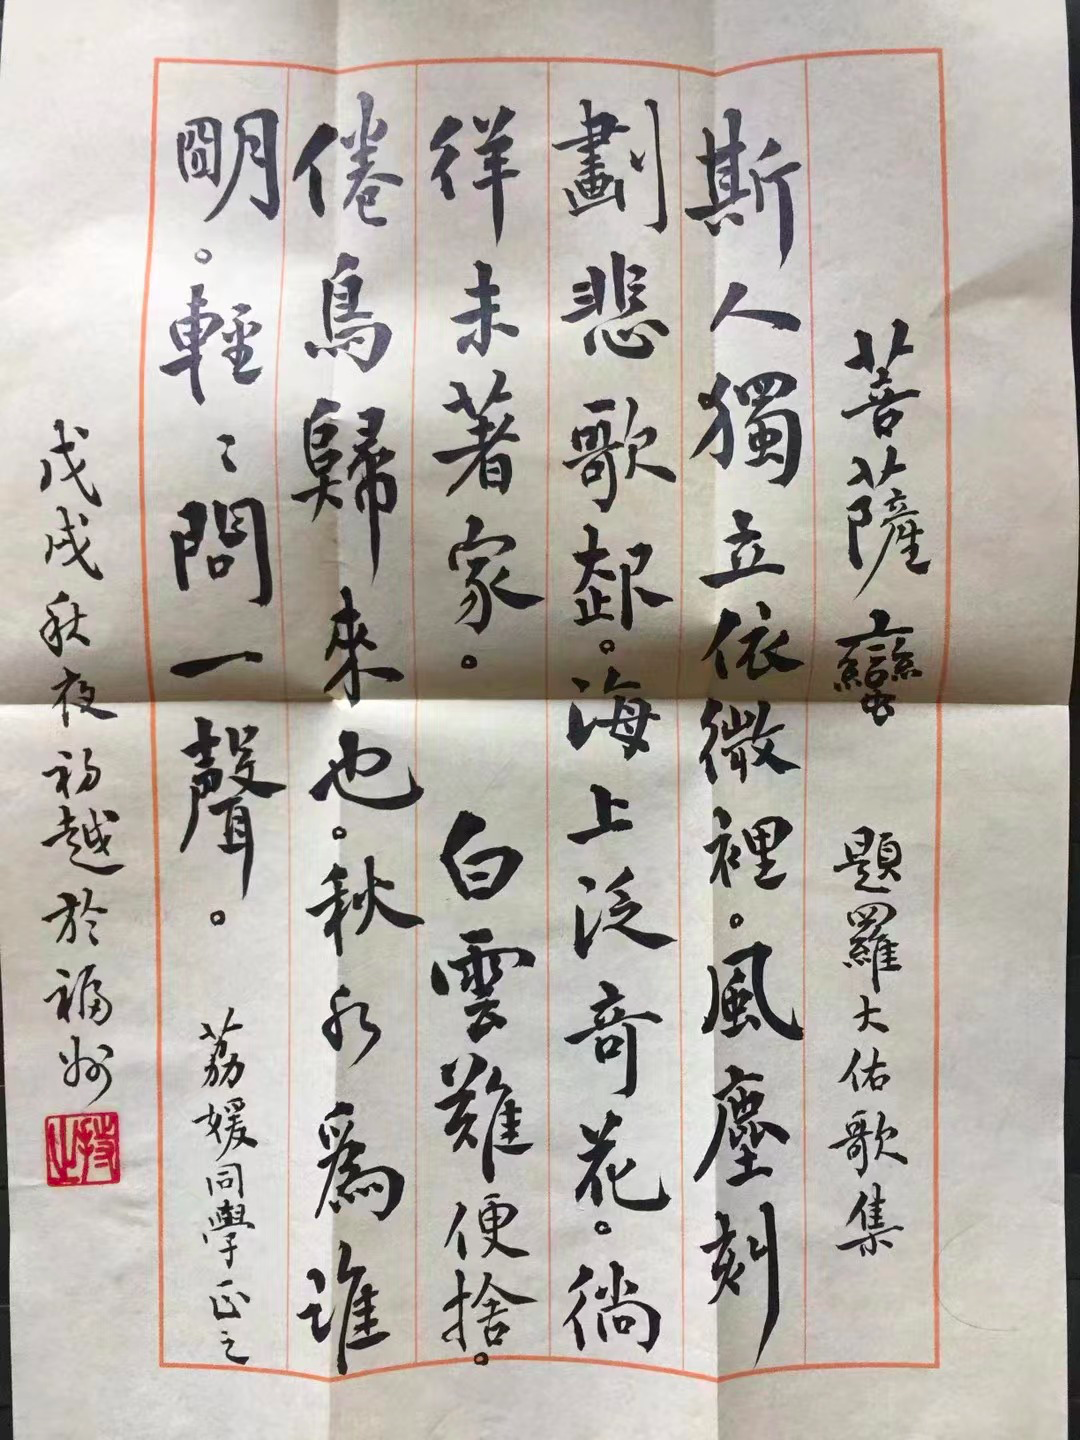 菩薩蠻 題羅大佑歌集
斯人獨立依微裡。風塵刻
劃悲歌起。海上泛奇花。徜
徉未著家。 白雲難便捨。
倦鳥歸來也。秋水為誰
明。輕〻問一聲。 荔媛同學正之
戊戌秋夜初越於福州
持之